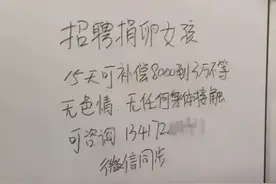 招聘捐卵女孩
15天可补偿8000到3万不等
无色情 无任何身体接触
可咨询 134172
微信同步